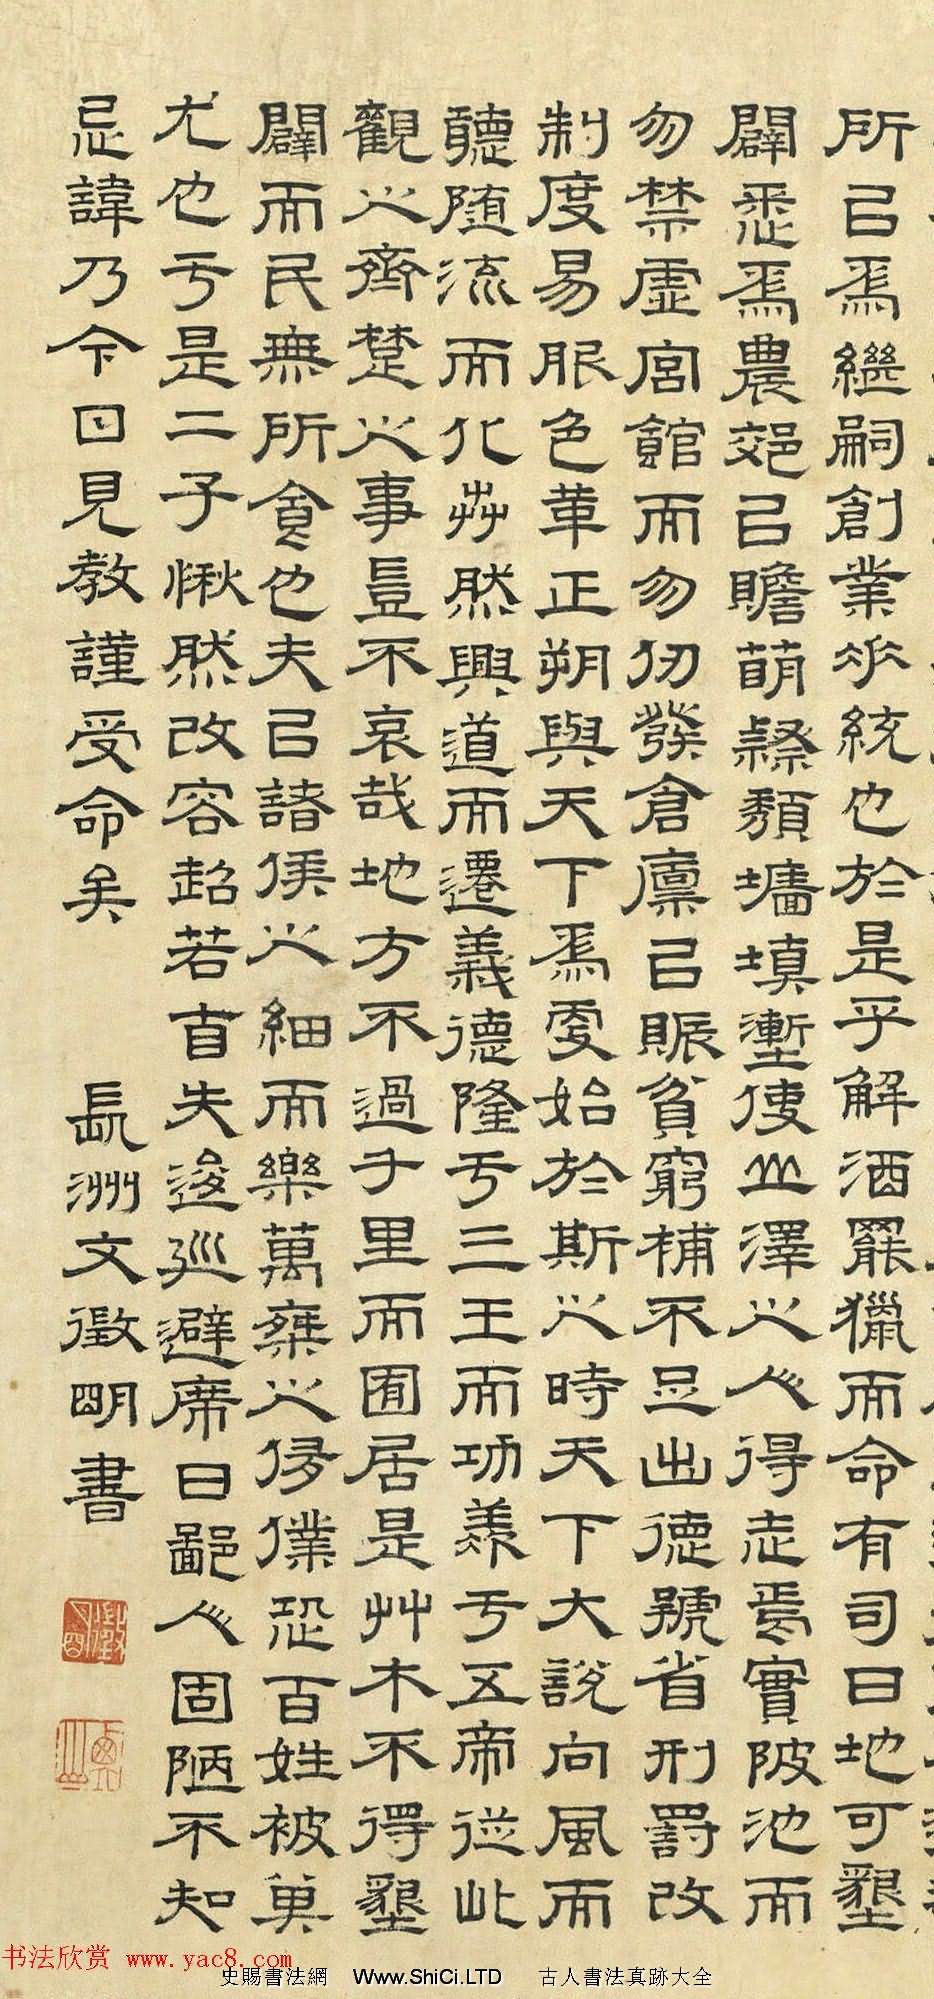 所㠯為繼嗣創業垂統也於是乎解酒罷獵而命有司曰地可墾
闢悉為農郊㠯贍萌隸頹墻填塹使山澤之人得走焉實陂池而
勿禁虛宮館而勿仞發倉廩㠯賑貧窮補不足出德號省刑罰改
制度易服色革正朔與天下為更始於斯之時天下大說向風而
聽隨流而化艸然興道而遷義德隆亏三王而功羨亏五帝從此
觀之齊楚之事豈不哀哉地方不過千里而囿居是艸木不得墾
闢而民無所食也夫㠯諸侯之細而樂萬乘之侈僕恐百姓被其
尤也亏是二子愀然改容超若自失逡巡避席曰鄙人固陋不知
忌諱乃今日見教謹受命矣 長洲文徵明書
徵明
书法欣赏 www.yac8.com
史賜書法網 Www.ShiCi.LTD 古人書法真跡大全